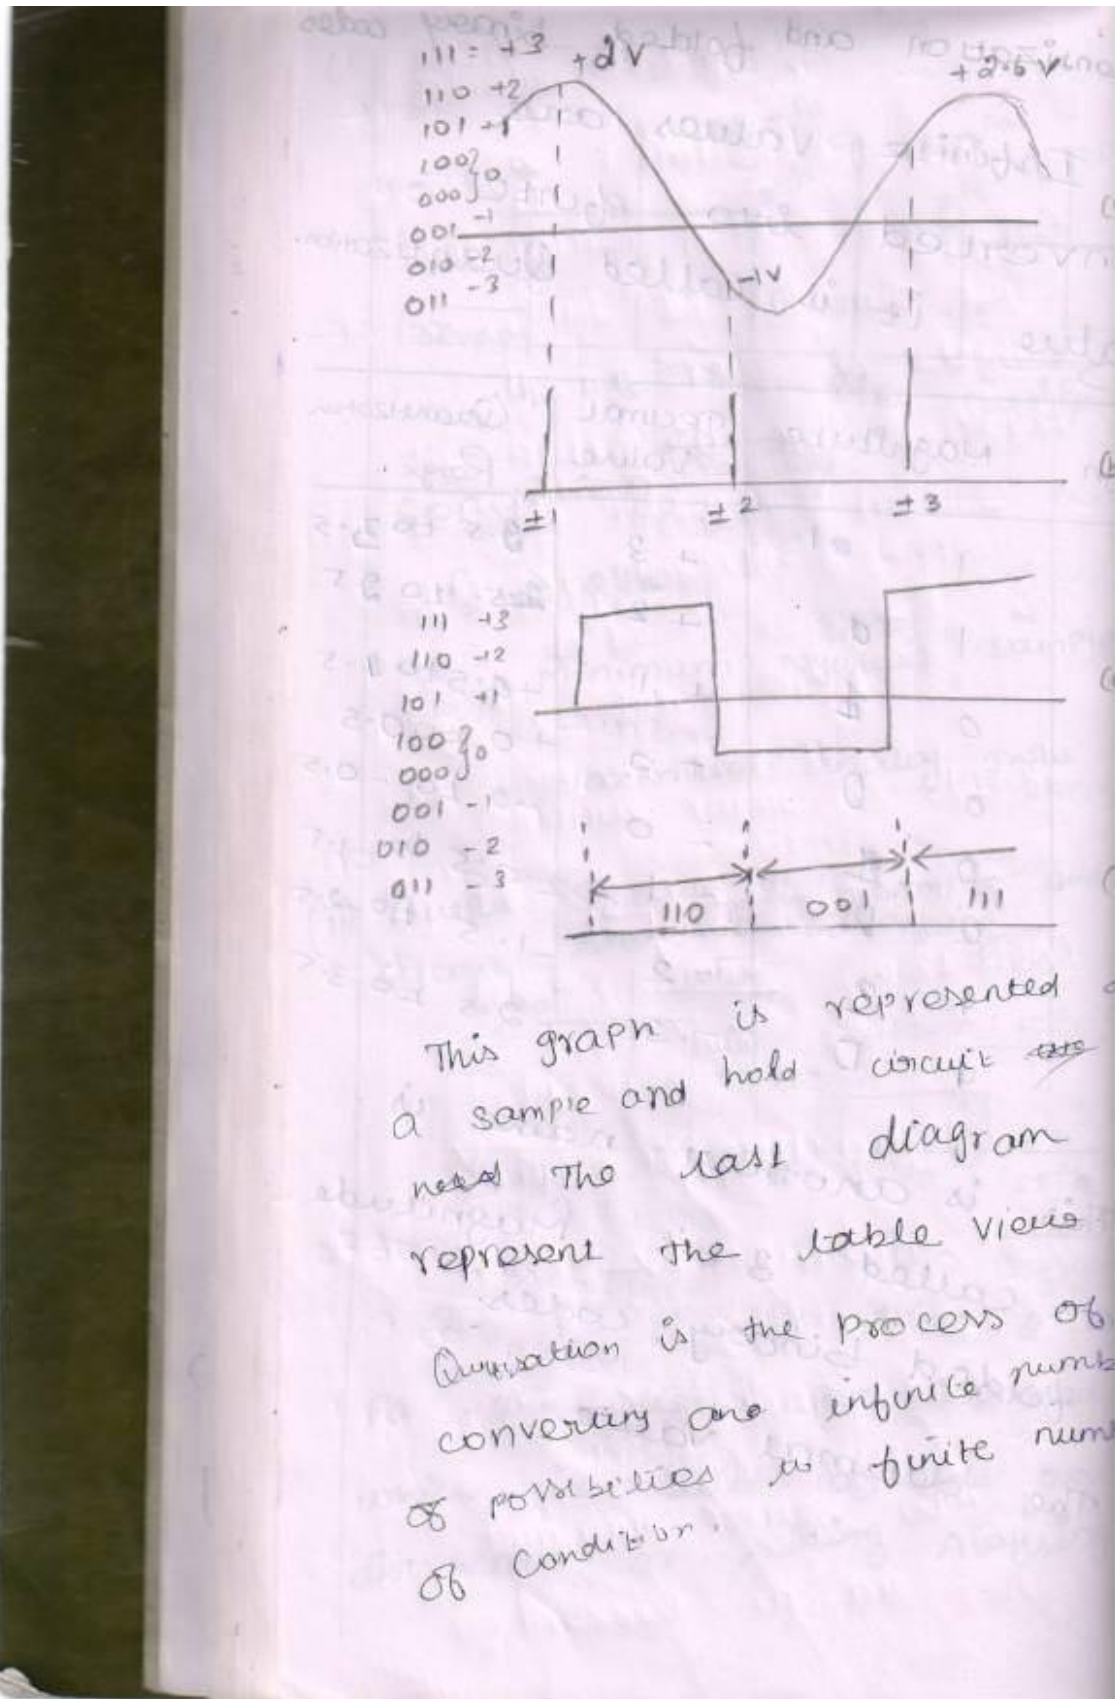 111 = +3 +2V +2.6 V
110 +2
101 +1
100 } 0
000
001 -1
010 -2 -1V
011 -3
±1 ±2 ±3
111 +3
110 +2
101 +1
100 } 0
000
001 -1
010 -2
011 -3
110 001 111
This graph is represented
a sample and hold circuit
The last diagram
represent the table view
is the process of
converting infinite numb
of possibilities finite num
of condition.